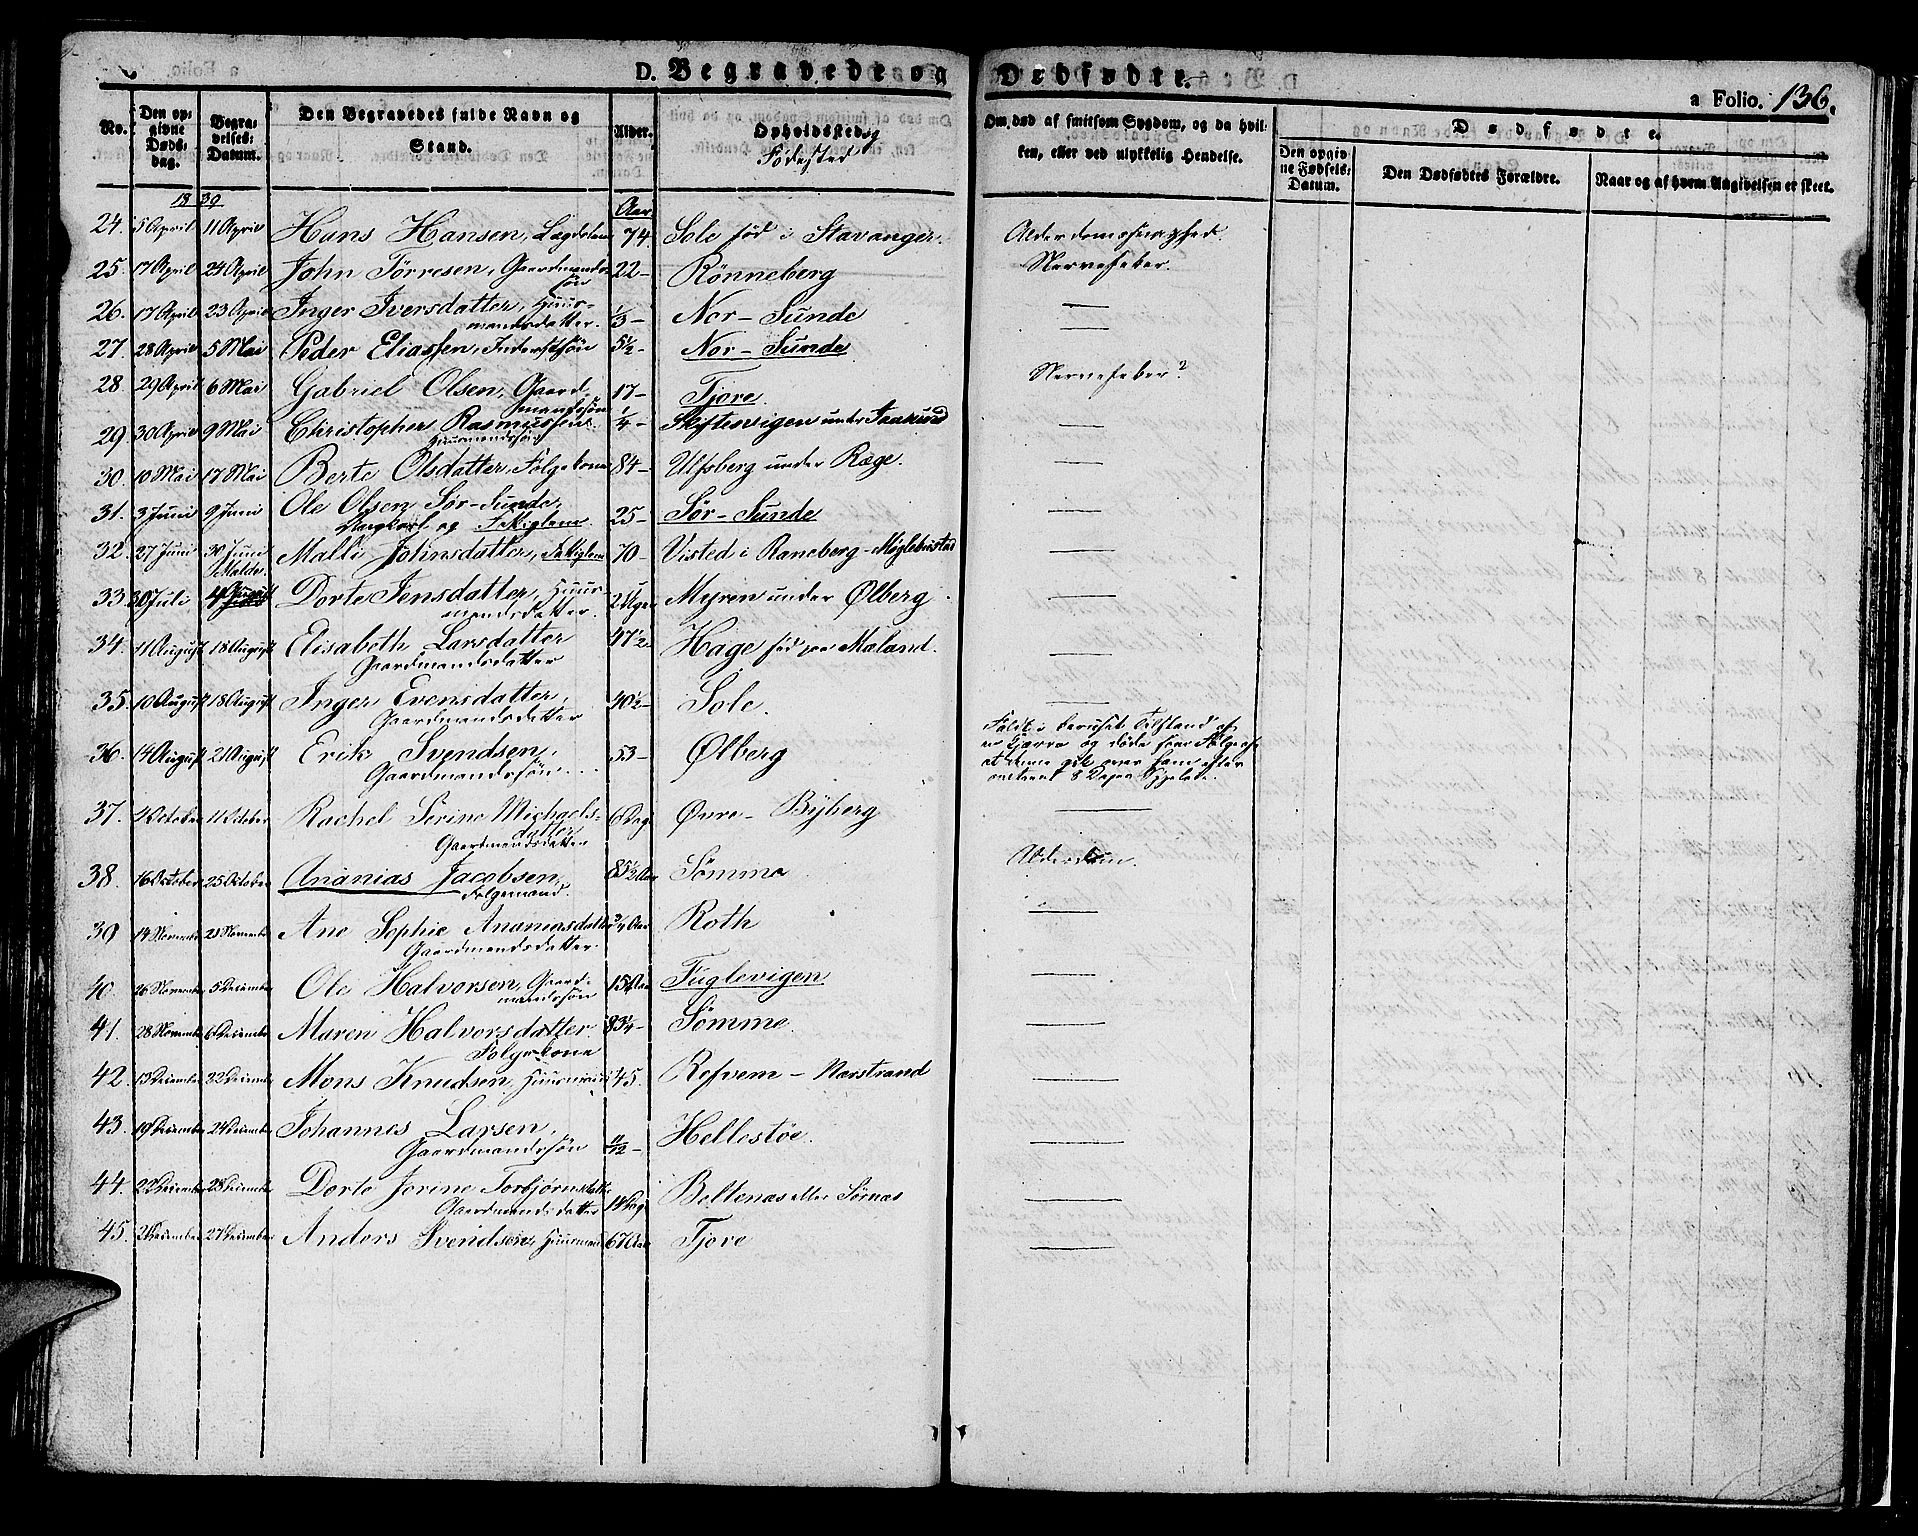 D. Begravede og Dødfødte. a Folio. 136.
No. | Den opgivne Dødsdag. | Begravelses-Datum. | Den Begravedes fulde Navn og Stand. | Alder. | Opholdssted og Fødested | Om død af smitsom Sygdom, og da hvilken, eller ved ulykkelig Hendelse. | Dødfødte. Den opgivne Fødsels-Datum. | Den Dødfødtes Forældre. | Naar og af hvem Angivelsen er skeet.
1839 Aar
24. 5 April 11 April Hans Hansen, Lægdslem 74 Sole fød i Stavanger. Alderdomssvaghed.
25. 17 April 24 April John Tørresen, Gaardmands-
søn 22 – Rönneberg Nervefeber.
26. 17 April 23 April Inger Iversdatter, Huus-
mandsdatter. 1/3 – Nor-Sunde —
27. 28 April 5 Mai Peder Eliassen, Inderstsøn 5 1/2 – Nor-Sunde —
28. 29 April 6 Mai Gabriel Olsen, Gaard-
mandssøn 17 – Tjore. Nervefeber?
29 30 April 9 Mai Christopher Rasmussen
Huusmandssøn 1/4 – Skiftesvigen under —
30. 10 Mai 17 Mai Berte Olsdatter, Følgekone 84 – Ulfsberg under Ræge. —
31. 3 Juni 9 Juni Ole Olsen Sør-Sunde,
og 25 – Sør-Sunde —
32. 27 Juni 30 Juni Malli Johnsdatter, 70 – Visted i Raneberg- —
33. 30 Juli 4 Dorte Jensdatter, Huus-
mandsdatter. 2 Uger Myren under Ølberg —
34. 11 August 18 August Elisabeth Larsdatter
Gaardmandsdatter 47 1/2 Hage fød paa Mæland. —
35. 10 August 18 August Inger Evensdatter,
Gaardmandsdatter 40 1/2 – Sole. —
36. 14 August 21 August Erik Svendsen,
Gaardmandssøn 53 – Ølberg Faldt i beruset Tilstand af
en Kjærre og døde som Følge af
at denne gik over ham efter
omtrent 8 Dages Sygeleie.
37. 4 October 11 October Rachel Serine Michaels-
datter
Gaardmandsdatter 6 Dage Øvre-Byberg —
38. 16 October 25 October Ananias Jacobsen,
Følgemand. 85 1/2 Aar Sömme Alderdom.
39 14 November 23 November Ane Sophie Ananiasdatter
Gaardmandsdatter. 3/4 Aar Roth —
40. 26 November 5 December Ole Halvorsen, Gaard-
mandssøn 15 Aar Fuglevigen —
41. 28 November 6 December Maren Halvorsdatter
Følgekone 83 1/4 – Sömme. —
42. 13 December 22 December Mons Knudsen, Huusmand 45. Refvem – Narstrand —
43. 19 December 24 December Johannes Larsen,
Gaardmandssøn 11/12 – Hellestøe. —
44. 22 December 28 December Dorte Jorine Torbjørnsdatter
Gaardmandsdatter 14 Dage Beltenæs eller Sørnæs —
45. 27 December Anders Svendsen, Huusmand 67 Aar Tjore —